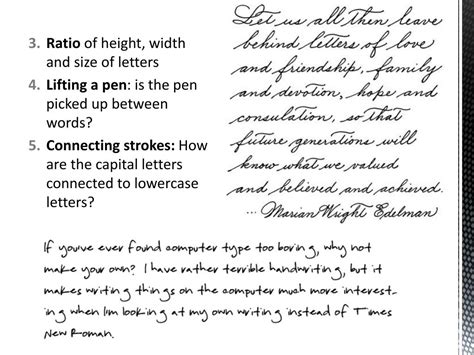 3. Ratio of height, width
and size of letters
4. Lifting a pen: is the pen
picked up between
words?
5. Connecting strokes: How
are the capital letters
connected to lowercase
letters?
Let us all then leave
behind letters of love
and friendship, family
and devotion, hope and
consulation, so that
future generations will
know what we valued
and believed and achieved.
... Marian Wright Edelman
If youve ever found computer type too boring, why not
make your own? I have rather terrible handwriting, but it
makes writing things on the computer much more interest-
ing when Im looking at my own writing instead of Times
New Roman.